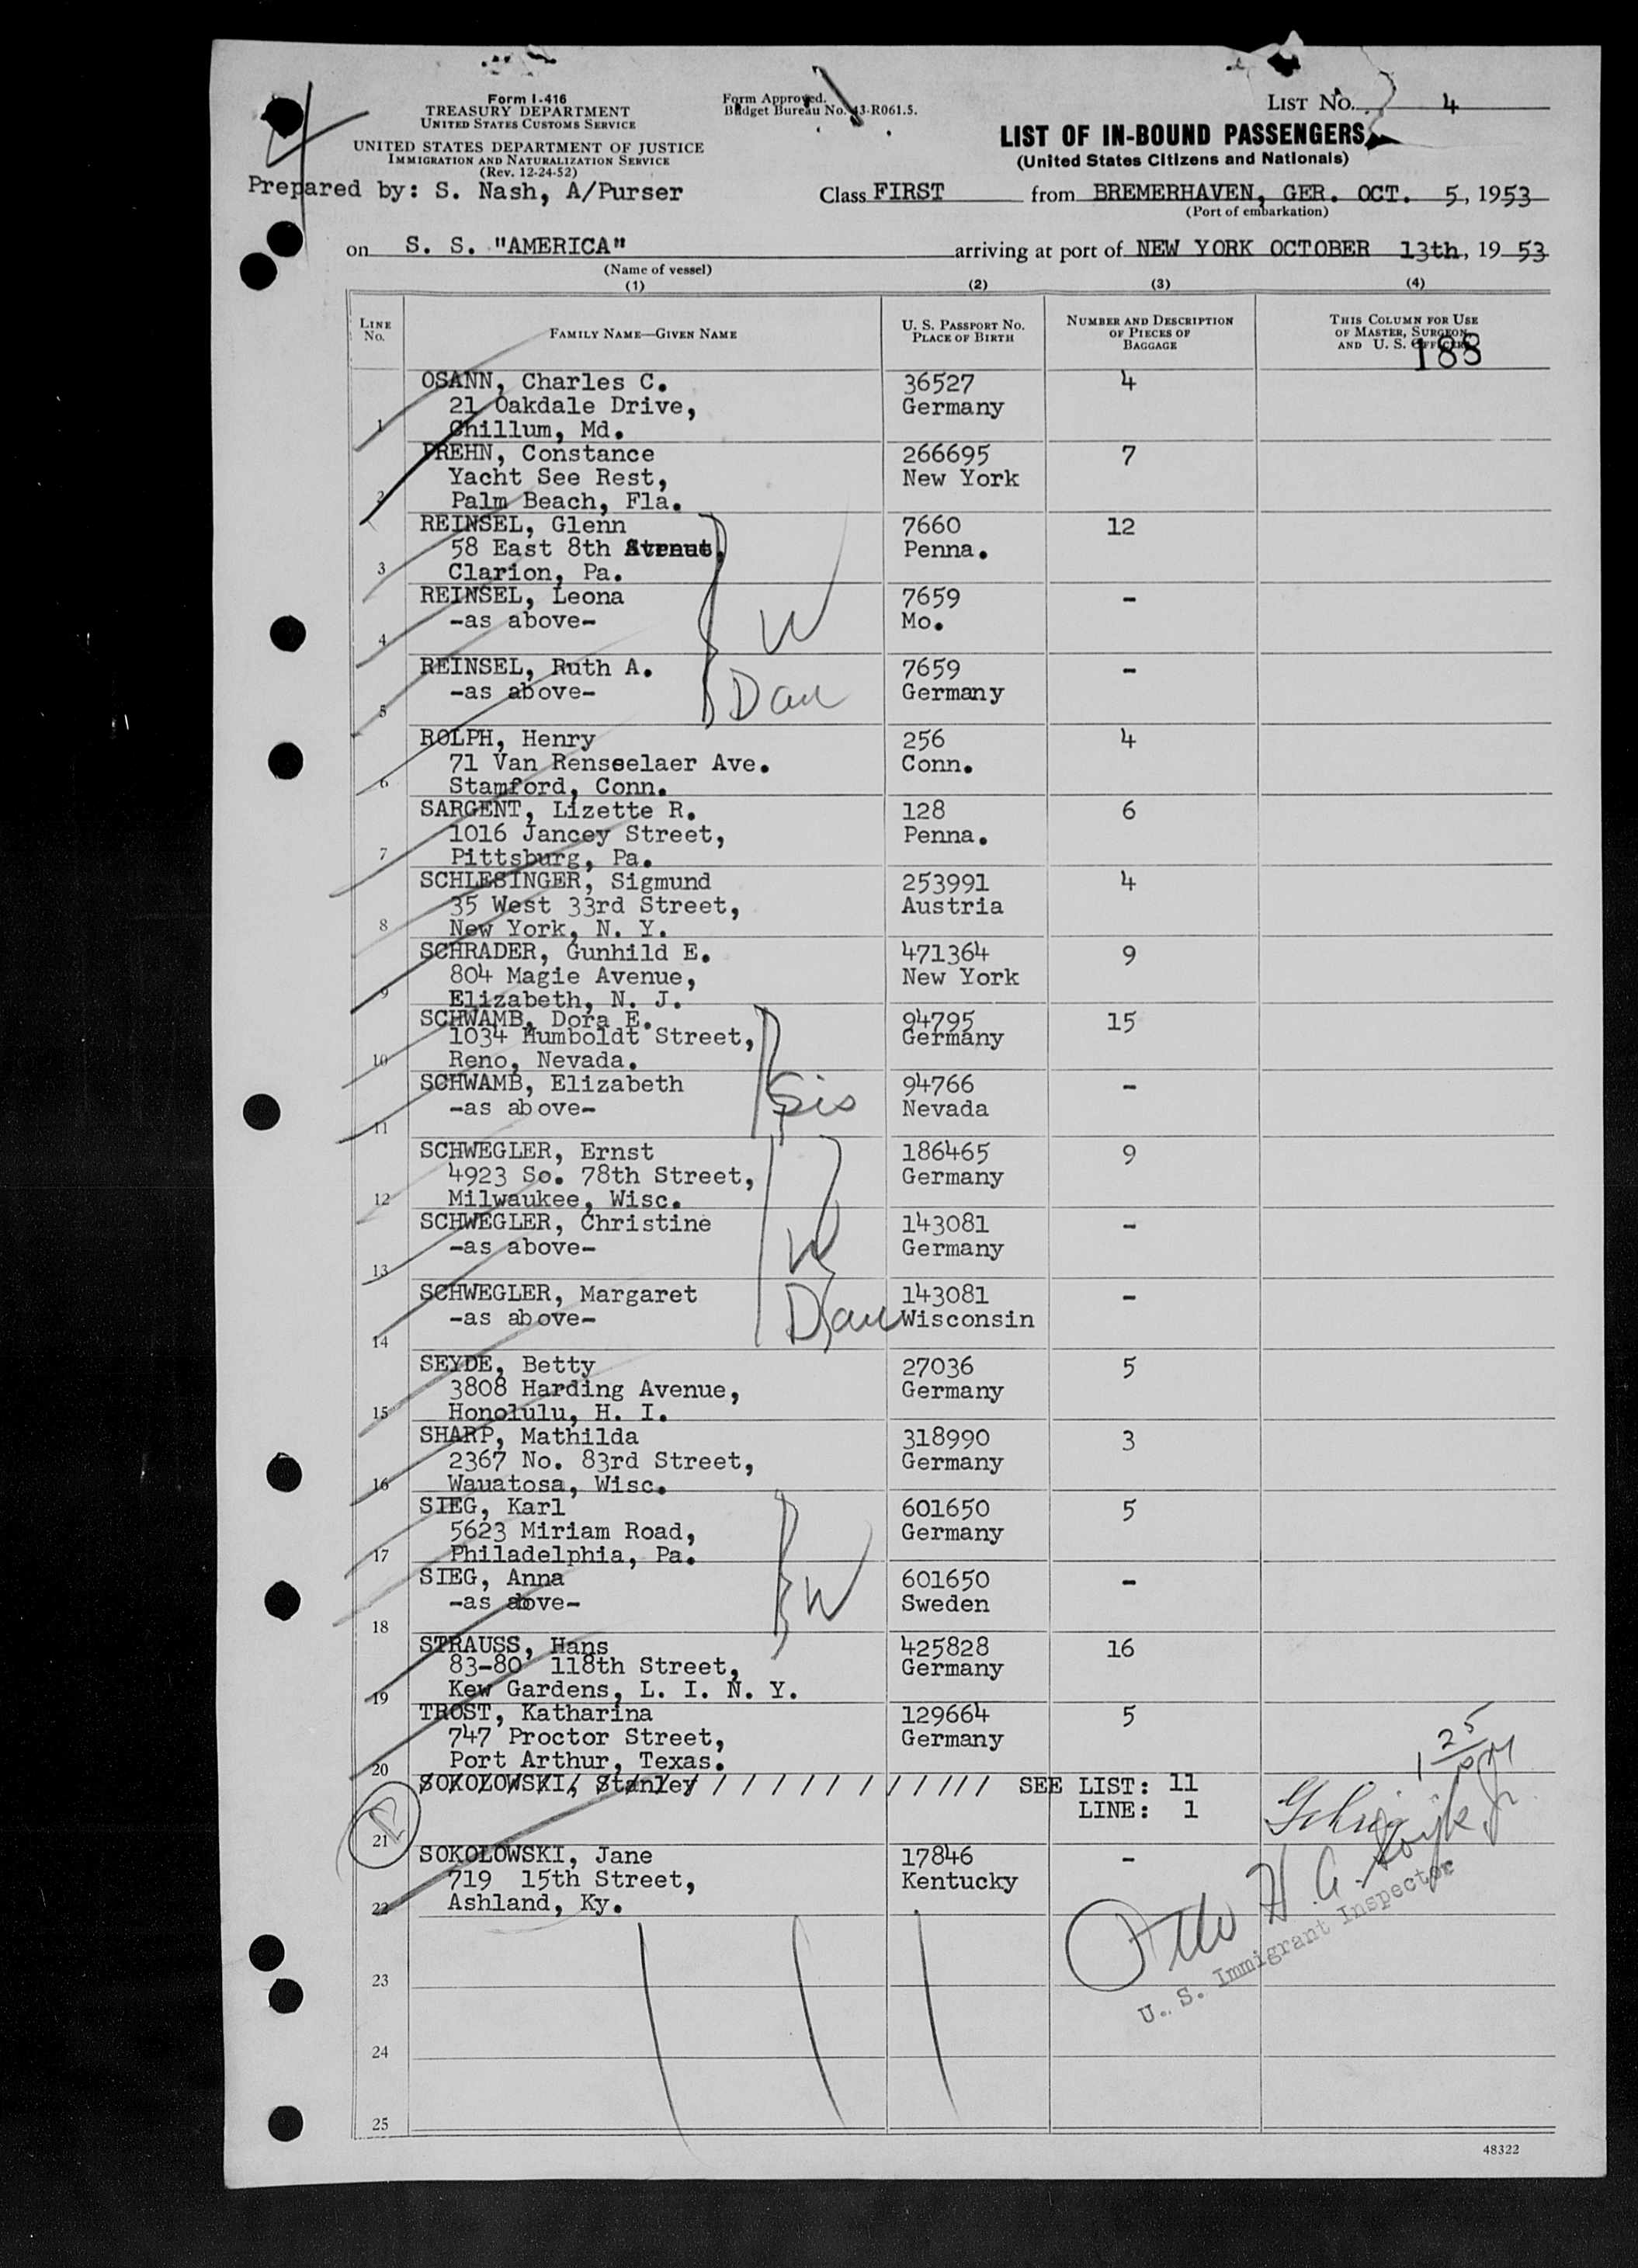 Form I-416
TREASURY DEPARTMENT
UNITED STATES CUSTOMS SERVICE
UNITED STATES DEPARTMENT OF JUSTICE
IMMIGRATION AND NATURALIZATION SERVICE
(Rev. 12-24-52)
Form Approved.
Budget Bureau No. 43-R061.5.
LIST No. 4
LIST OF IN-BOUND PASSENGERS
(United States Citizens and Nationals)
Prepared by: S. Nash, A/Purser
Class FIRST from BREMERHAVEN, GER. OCT. 5, 1953
(Port of embarkation)
on S. S. "AMERICA" arriving at port of NEW YORK OCTOBER 13th, 1953
(Name of vessel)
(1) (2) (3) (4)
LINE No.
FAMILY NAME—GIVEN NAME
U. S. PASSPORT No. PLACE OF BIRTH
NUMBER AND DESCRIPTION OF PIECES OF BAGGAGE
THIS COLUMN FOR USE OF MASTER, SURGEON, AND U. S. OFFICERS
188
OSANN, Charles C. 36527 4
21 Oakdale Drive, Germany
1 Chillum, Md.
PREHN, Constance 266695 7
Yacht See Rest, New York
2 Palm Beach, Fla.
REINSEL, Glenn 7660 12
58 East 8th Penna.
3 Clarion, Pa.
REINSEL, Leona 7659 -
-as above- W Mo.
4
REINSEL, Ruth A. 7659 -
-as above- Dau Germany
5
ROLPH, Henry 256 4
71 Van Rensselaer Ave. Conn.
6 Stamford, Conn.
SARGENT, Lizette R. 128 6
1016 Jancey Street, Penna.
7 Pittsburg, Pa.
SCHLESINGER, Sigmund 253991 4
35 West 33rd Street, Austria
8 New York, N. Y.
SCHRADER, Gunhild E. 471364 9
804 Magie Avenue, New York
9 Elizabeth, N. J.
SCHWAMB, Dora E. 94795 15
1034 Humboldt Street, Germany
10 Reno, Nevada.
SCHWAMB, Elizabeth 94766 -
-as above- Sis Nevada
11
SCHWEGLER, Ernst 186465 9
4923 So. 78th Street, Germany
12 Milwaukee, Wisc.
SCHWEGLER, Christine 143081 -
-as above- W Germany
13
SCHWEGLER, Margaret 143081 -
-as above- Dau Wisconsin
14
SEYDE, Betty 27036 5
3808 Harding Avenue, Germany
15 Honolulu, H. I.
SHARP, Mathilda 318990 3
2367 No. 83rd Street, Germany
16 Wauatosa, Wisc.
SIEG, Karl 601650 5
5623 Miriam Road, Germany
17 Philadelphia, Pa.
SIEG, Anna 601650 -
-as above- W Sweden
18
STRAUSS, Hans 425828 16
83-80 118th Street, Germany
19 Kew Gardens, L. I. N. Y.
TROST, Katharina 129664 5
747 Proctor Street, Germany
20 Port Arthur, Texas.
SOKOLOWSKI, Stanley / / / / / / / / / / / / / / / SEE LIST: 11
LINE: 1
21
SOKOLOWSKI, Jane 17846 -
719 15th Street, Kentucky
22 Ashland, Ky.
Otto H. G.
U. S. Immigrant Inspector
23
24
25
48322